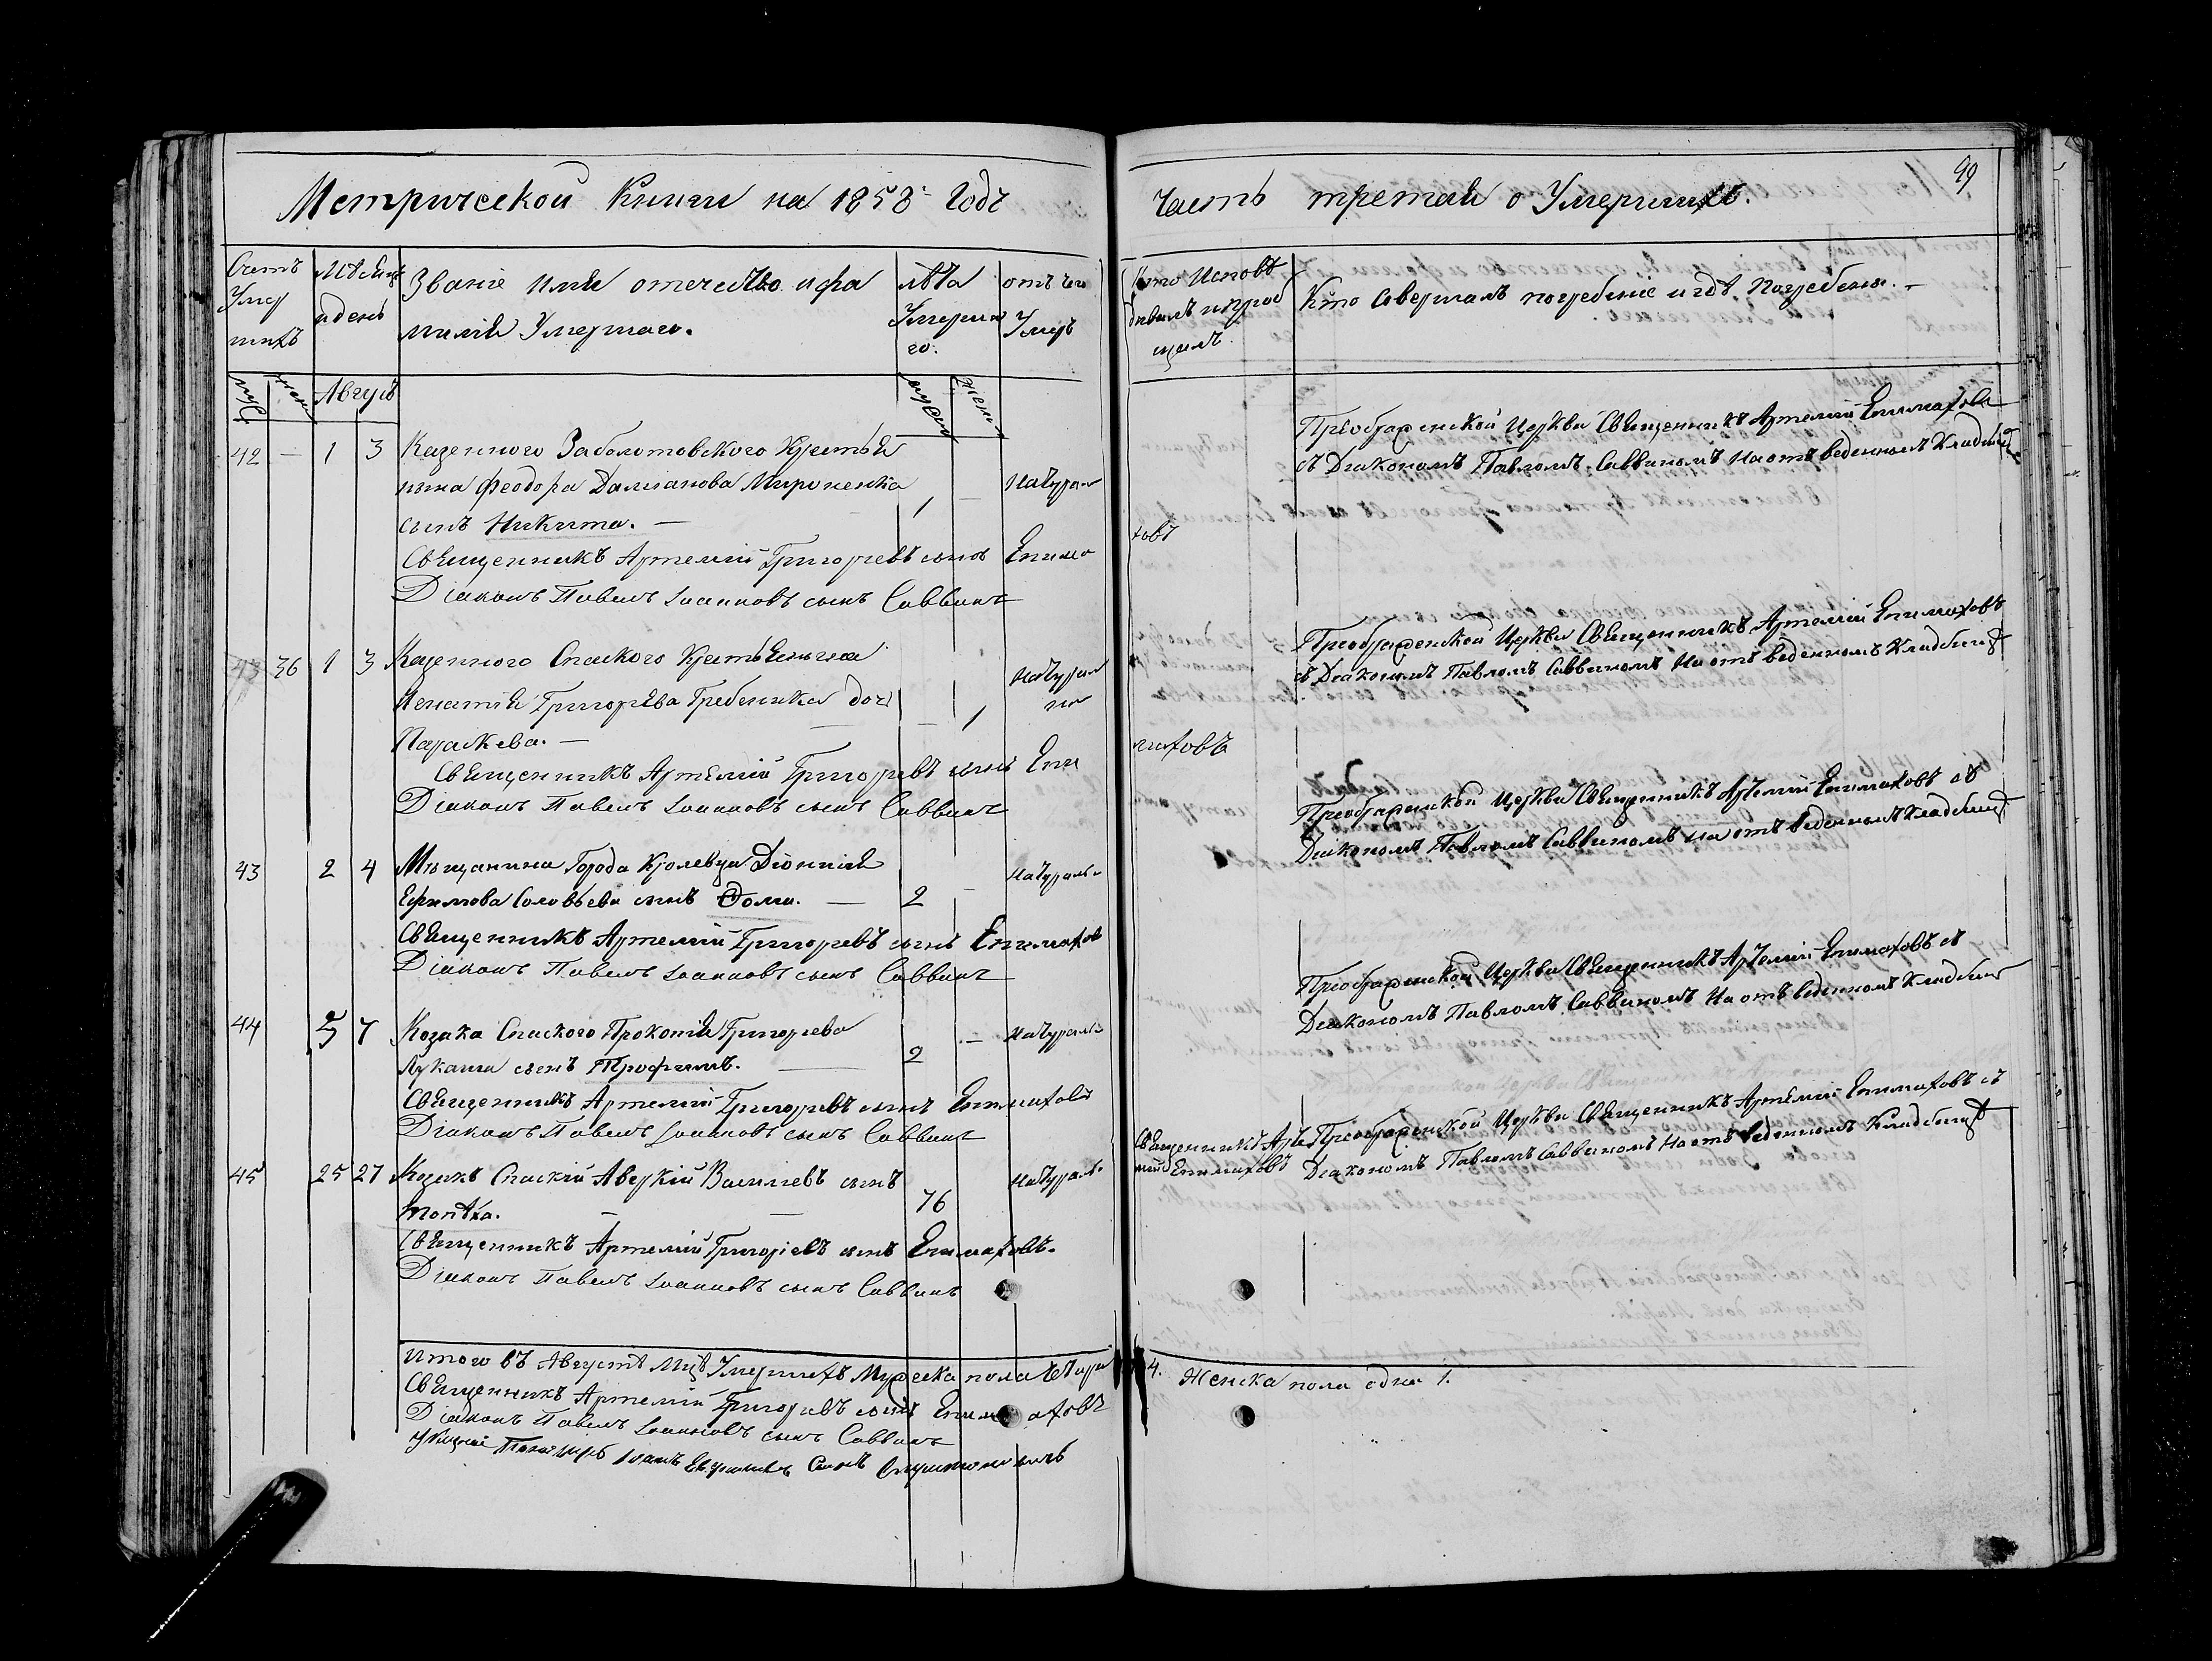 Метрической Книги на 1858 Годъ
Часть третая о Умершихъ.
49
Счетъ Умер шихъ
Мѣсяцъ и день
Званіе имя отечество и фа
миліи Умершаго.
лѣта Умерша го.
отъ чего Умеръ
Кто Исповѣ дывалъ и приоб щалъ.
Кто Совершалъ погребеніе и гдѣ Погребены.
муж жен
Авгус
муж жен
42 — 1 3 Казенного Заболотовского Крестья
нина Феодора Дамianова Мироненка 1 — Натурал
сынъ Никита. —
Священникъ Артемій Григоріевъ сынъ Епима
ховъ
Діаконъ Павелъ Іоанновъ сынъ Саввинъ
Преображенской Церкви Священникъ Артемій Епимаховъ
съ Діакономъ Павломъ Саввиномъ На отъведенномъ Кладбищѣ
43 36 1 3 Казенного Спаского Крестьянина
Игнатія Григорьева Гребеника доч — 1 Натурал
но
Параскева. —
Священникъ Артемій Григорьевъ сынъ Епи
маховъ
Діаконъ Павелъ Іоанновъ сынъ Саввинъ
Преображенской Церкви Священникъ Артемій Епимаховъ
съ Діакономъ Павломъ Саввиномъ На отъведенномъ Кладбищѣ
43 2 4 Мѣщанина Города Кролевца Діонисія
Ефимова Соловьева сынъ Фома. — 2 — Натураль
Священникъ Артемій Григорьевъ сынъ Епимахов
Діаконъ Павелъ Іоанновъ сынъ Саввинъ
Преображенской Церкви Священникъ Артемій Епимаховъ съ
Діакономъ Павломъ Саввиномъ На отъведенномъ Кладбищѣ
44 5 7 Козака Спаского Прокопія Григорьева
Лукаша сынъ Трофимъ. — 2 — Натураль
Священникъ Артемій Григорьевъ сынъ Епимаховъ
Діаконъ Павелъ Іоанновъ сынъ Саввинъ
Преображенской Церкви Священникъ Артемій Епимаховъ съ
Діакономъ Павломъ Саввиномъ На отъведенномъ Кладбищѣ
45 25 27 Козакъ Спаскій Аверкій Васильевъ сынъ
76 Натураль
Священникъ Арте
мій Епимаховъ
Священникъ Артемій Григоріевъ сынъ Епимаховъ.
Діаконъ Павелъ Іоанновъ сынъ Саввинъ
Преображенской Церкви Священникъ Артемій Епимаховъ съ
Діакономъ Павломъ Саввиномъ На отъведенномъ Кладбищѣ
Итого въ Августѣ Мцѣ Умершихъ Мужеска пола четыри 4. Женска пола одна 1.
Священникъ Артемій Григорьевъ сынъ Епимаховъ
Діаконъ Павелъ Іоанновъ сынъ Саввинъ
Іоанъ Сынъ